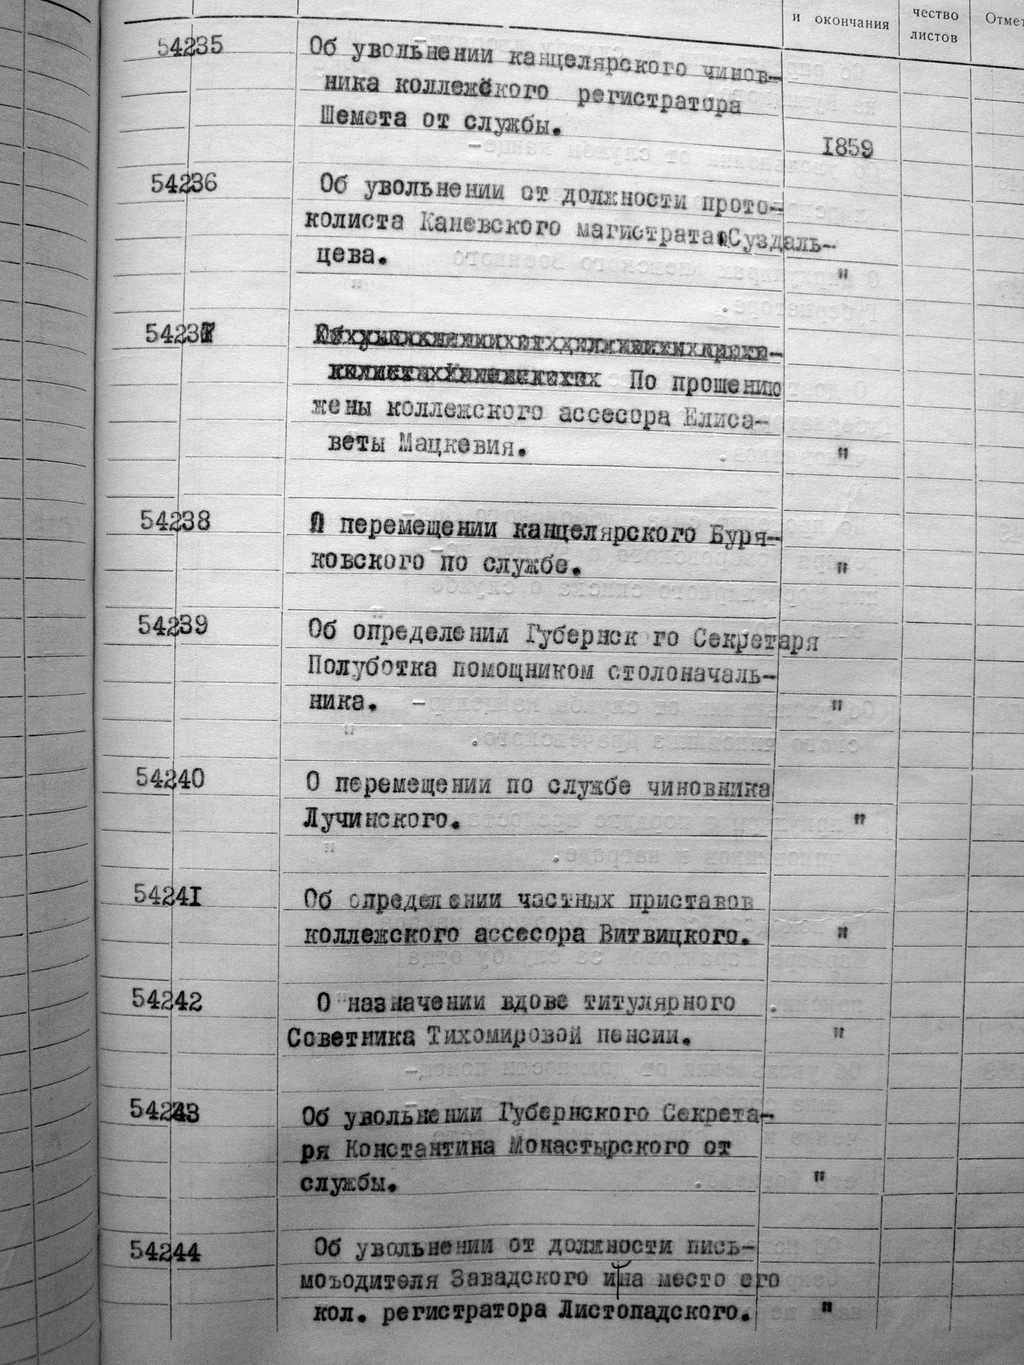 и окончания
чество
листов
Отмет
54235
Об увольнении канцелярского чинов-
ника коллежского регистратора
Шемета от службы.
1859
54236
Об увольнении от должности прото-
колиста Каневского магистрата Суздаль-
цева.
"
54237
По прошению
жены коллежского ассесора Елиса-
веты Мацкевия.
"
54238
О перемещении канцелярского Буря-
ковского по службе.
"
54239
Об определении Губернск го Секретаря
Полуботка помощником столоначаль-
ника.
"
54240
О перемещении по службе чиновника
Лучинского.
"
54241
Об определении частных приставов
коллежского ассесора Витвицкого.
"
54242
О назначении вдове титулярного
Советника Тихомировой пенсии.
"
54243
Об увольнении Губернского Секрета-
ря Константина Монастырского от
службы.
"
54244
Об увольнении от должности пись-
моводителя Завадского и на место его
кол. регистратора Листопадского.
"